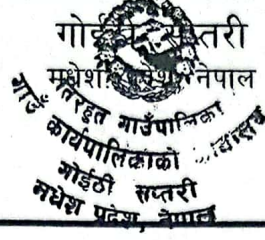 सप्तरी
मधेश प्रदेश, नेपाल
तिरहुत गाउँपालिका
गाउँ कार्यपालिकाको
गोईठी सप्तरी
मधेश प्रदेश, नेपाल